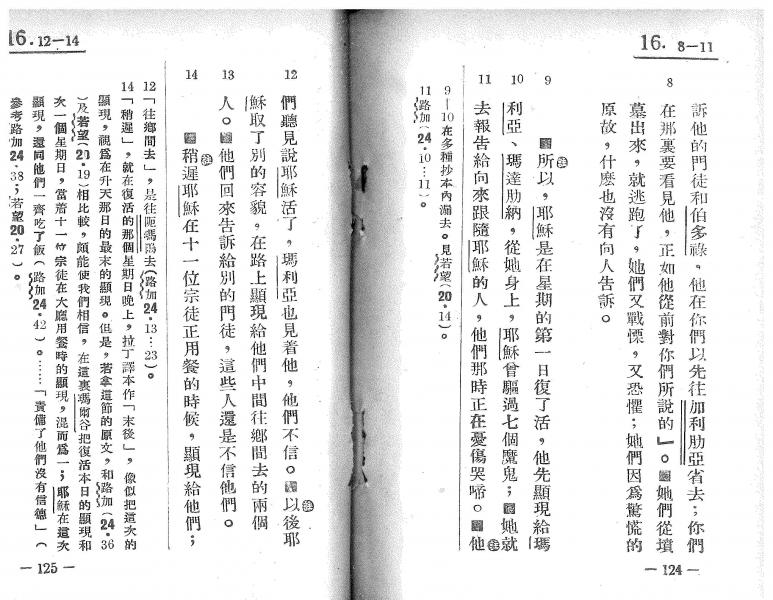 16. 8—11
8
訴他的門徒和伯多祿，他在你們以先往加利肋亞省去；你們
在那裏要看見他，正如他從前對你們所說的』。她們從墳
墓出來，就逃跑了，她們又戰慄，又恐懼；她們因爲驚慌的
原故，什麽也沒有向人告訴。
9 所以，耶穌是在星期的第一日復了活，他先顯現給瑪
10 利亞、瑪達肋納，從她身上，耶穌曾驅過七個魔鬼；她就
11 去報告給向來跟隨耶穌的人，他們那時正在憂傷哭啼。他
9—10在多種抄本內漏去。見若望（20·14）。
11路加（24·10…11）。
—124—
16. 12—14
12 們聽見說耶穌活了，瑪利亞也見着他，他們不信。以後耶
穌取了別的容貌，在路上顯現給他們中間往鄉間去的兩個
13 人。他們回來告訴給別的門徒，這些人還是不信他們。
14 稍遲耶穌在十一位宗徒正用餐的時候，顯現給他們；
12「往鄉間去」，是往阨瑪陽去（路加24·13…23）。
14「稍遲」，就在復活的那個星期日晚上，拉丁譯本作「末後」，像似把這次的
顯現，視爲在升天那日的最末的顯現。但是，若拿這節的原文，和路加（24·36
）及若望（20·19）相比較，頗能使我們相信，在這裏瑪爾谷把復活本日的顯現和
次一個星期日，當着十一位宗徒在大廳用餐時的顯現，混而爲一；耶穌在這次
顯現，還同他們一齊吃了飯（路加24·42）。……「責備了他們沒有信德」（
參考路加24·38；若望20·27）。
—125—